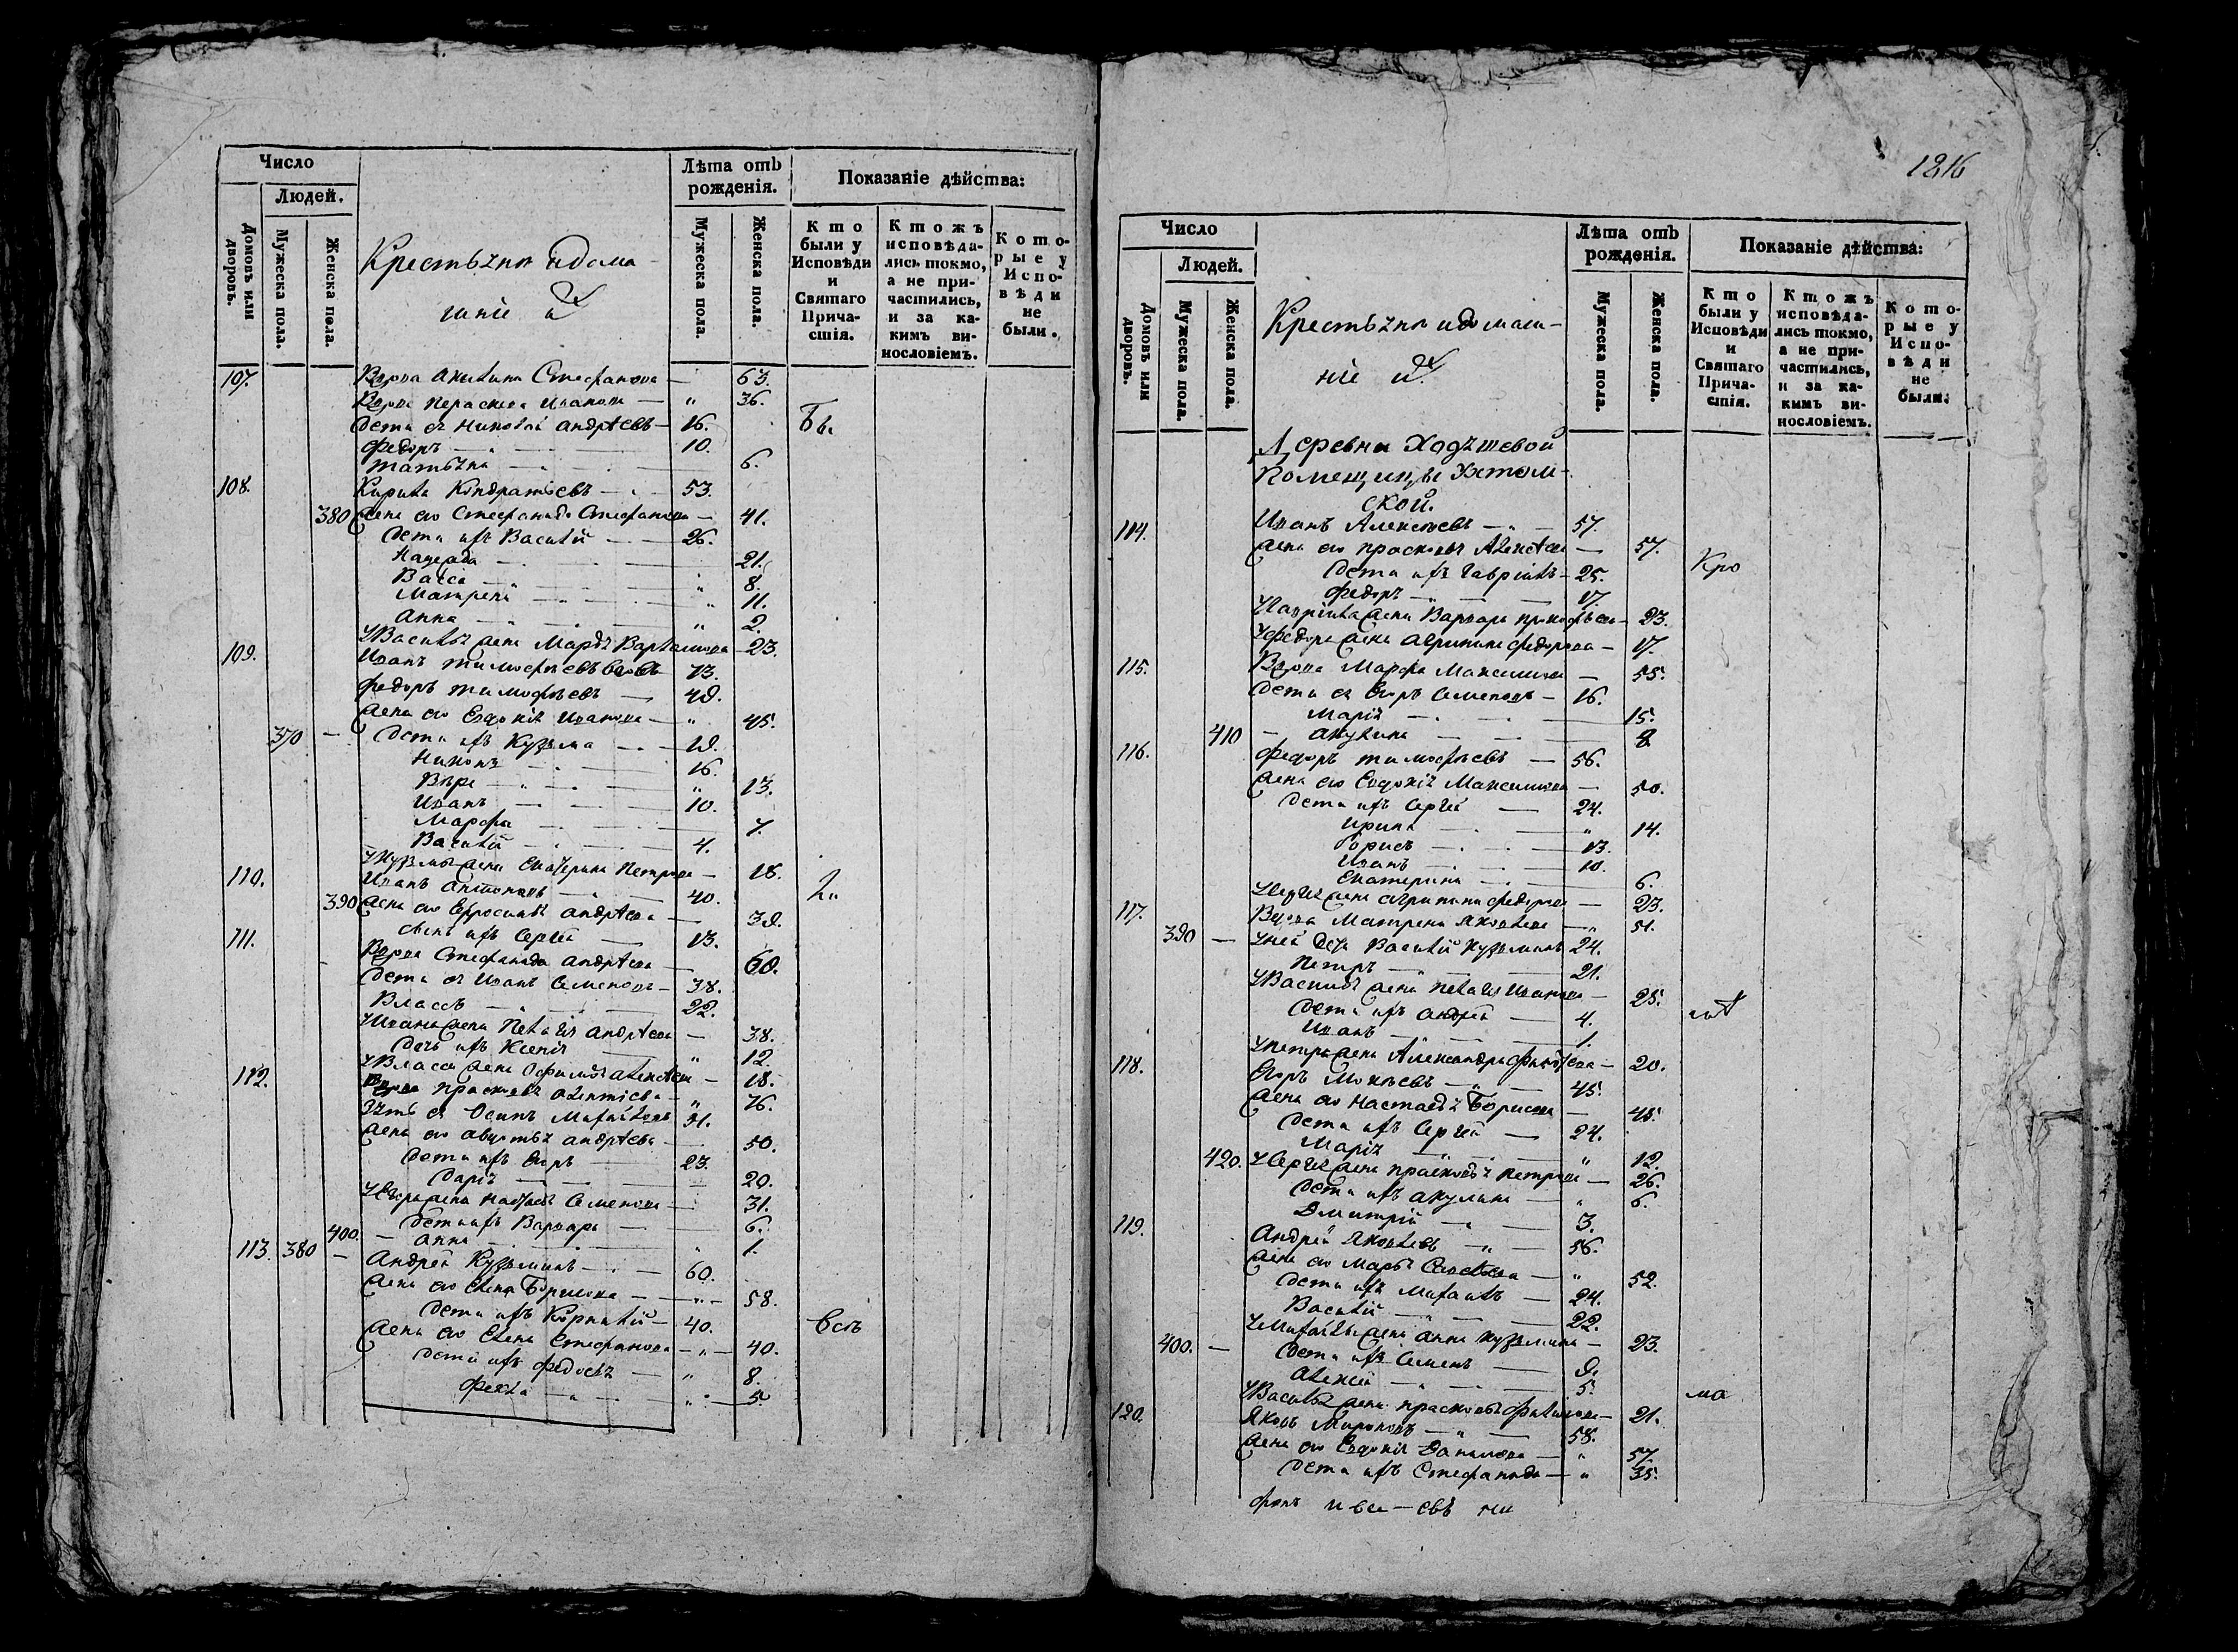 Число
Людей.
Домовъ или дворовъ.
Мужеска пола.
Женска пола.
Крестьяне и дома-
шніе ихъ
Лѣта отъ рожденія.
Мужеска пола.
Женска пола.
Показаніе дѣйства:
Кто были у Исповѣди и Святаго Прича-стія.
Ктожъ исповѣда-лись токмо, а не при-частились, и за ка-кимъ ви-нословіемъ.
Кото-рые у Испо-вѣди не были.
107. Вдова Акилина Стефанова — 63.
Вдова Параскева Иванова — " 36.
Дети ея Николай Андреевъ — 16. Бы
Федоръ — 10.
Татьяна — 6.
108. Кирила Кондратьевъ — 53.
380 Жена его Стефанида Стефанова — 41.
Дети ихъ Василій — 26.
Надежда — 21.
Васса — " 8.
Матрена — " 11.
Анна — " 2.
У Василья жена Марья Варламова — 23.
109. Иванъ Тимофеевъ вдовъ 73.
Федоръ Тимофеевъ — 49.
Жена его Евдокія Иванова — " 45.
370 — Дети ихъ Кузьма — 19.
Никонъ — 16.
Вѣра — " 13.
Иванъ — 10.
Марфа — 7.
Василій — 4.
У Кузьмы жена Екатерина Петрова — 18.
110. Иванъ Антоновъ — 40. 2"
390 Жена его Ефросинья Андреева — 39.
Сынъ ихъ Сергей — 13.
111. Вдова Стефанида Андреева — 60.
Дети ея Иванъ Семеновъ — 38.
Власъ — 22.
У Ивана жена Пелагея Андреева — 38.
Дочь ихъ Ксенія — " 12.
У Власа жена Афимья Алексеева — 18.
112. Вдова Прасковья — " 76.
Зять ея Осипъ Михайловъ 51.
Жена его Авдотья Андреева — 50.
Дети ихъ Егоръ — 23.
Дарья — 20.
У Егора жена Надежда Семенова — 31.
Дети ихъ Варвара — 6.
400. — Анна — " 1.
113. 380 — Андрей Кузьминъ — 60.
Жена его Елена Борисова — " — 58.
Дети ихъ Корнилій — 40. всѣ
Жена его Елена Стефанова — " — 40.
Дети ихъ Федосья — " 8.
Фекла — " — 5
1216
Число
Людей.
Домовъ или дворовъ.
Мужеска пола.
Женска пола.
Крестьяне и домаш-
ніе ихъ
Лѣта отъ рожденія.
Мужеска пола.
Женска пола.
Показаніе дѣйства:
Кто были у Исповѣди и Святаго Прича-стія.
Ктожъ исповѣда-лись токмо, а не при-частились, и за ка-кимъ ви-нословіемъ.
Кото-рые у Испо-вѣди не были.
Деревни Ходяшевой
Помещицы Ухтом-
ской.
114. Иванъ Алексеевъ — " — 57.
Жена его Прасковья Алексеева — 57.
Дети ихъ Гавріилъ — 25. Кро
Федоръ — " — 17.
У Гавріила жена Варвара Прокофьева — 23.
У Федора жена Агрипина Федорова — 17.
115. Вдова Марфа Максимова — 55.
Дети ея Егоръ Семеновъ — 16.
Марія — 15.
410 — Акулина — 8
116. Федоръ Тимофеевъ — 56.
Жена его Евдокія Максимова — 50.
Дети ихъ Сергей — 24.
Ирина — " 14.
Борисъ — 13.
Иванъ — 10.
Екатерина — 6.
У Сергея жена Агрипина Федорова — 23.
117. Вдова Матрена Яковлева — " 51.
390 — У ней дети Василій Кузьминъ 24.
Петръ — 21.
У Василья жена Пелагея Иванова — 25.
Дети ихъ Андрей — 4.
Иванъ — 1.
У Петра жена Александра — 20.
118. Егоръ Мокеевъ — " — 45.
Жена его Настасья Борисова — 45.
Дети ихъ Сергей — 24.
Марія — " 12.
420. У Сергея жена Прасковья Петрова — 26.
Дети ихъ Акулина — " 6.
Дмитрій — " — 3.
119. Андрей Яковлевъ — " — 56.
Жена его Марья Савельева — " 52.
Дети ихъ Михаилъ — 24.
Василій — 22.
У Михайлы жена Анна Кузьмина — 23.
400. — Дети ихъ Семенъ — 9.
Алексей — " — 5. ма
У Василья жена Прасковья Филипова — 21.
120. Яковъ Мироновъ — " — 58.
Жена его Евдокія Данилова — " 57.
Дети ихъ Стефанида — " 35.